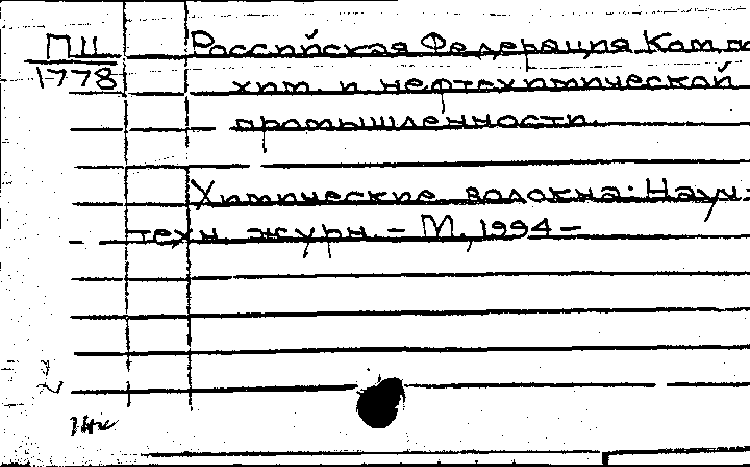 П 11
1778
Российская Федерация Ком. по
хим. и нефтехимической
промышленности.
Химические волокна: Науч.-
техн. журн. - М., 1994 -